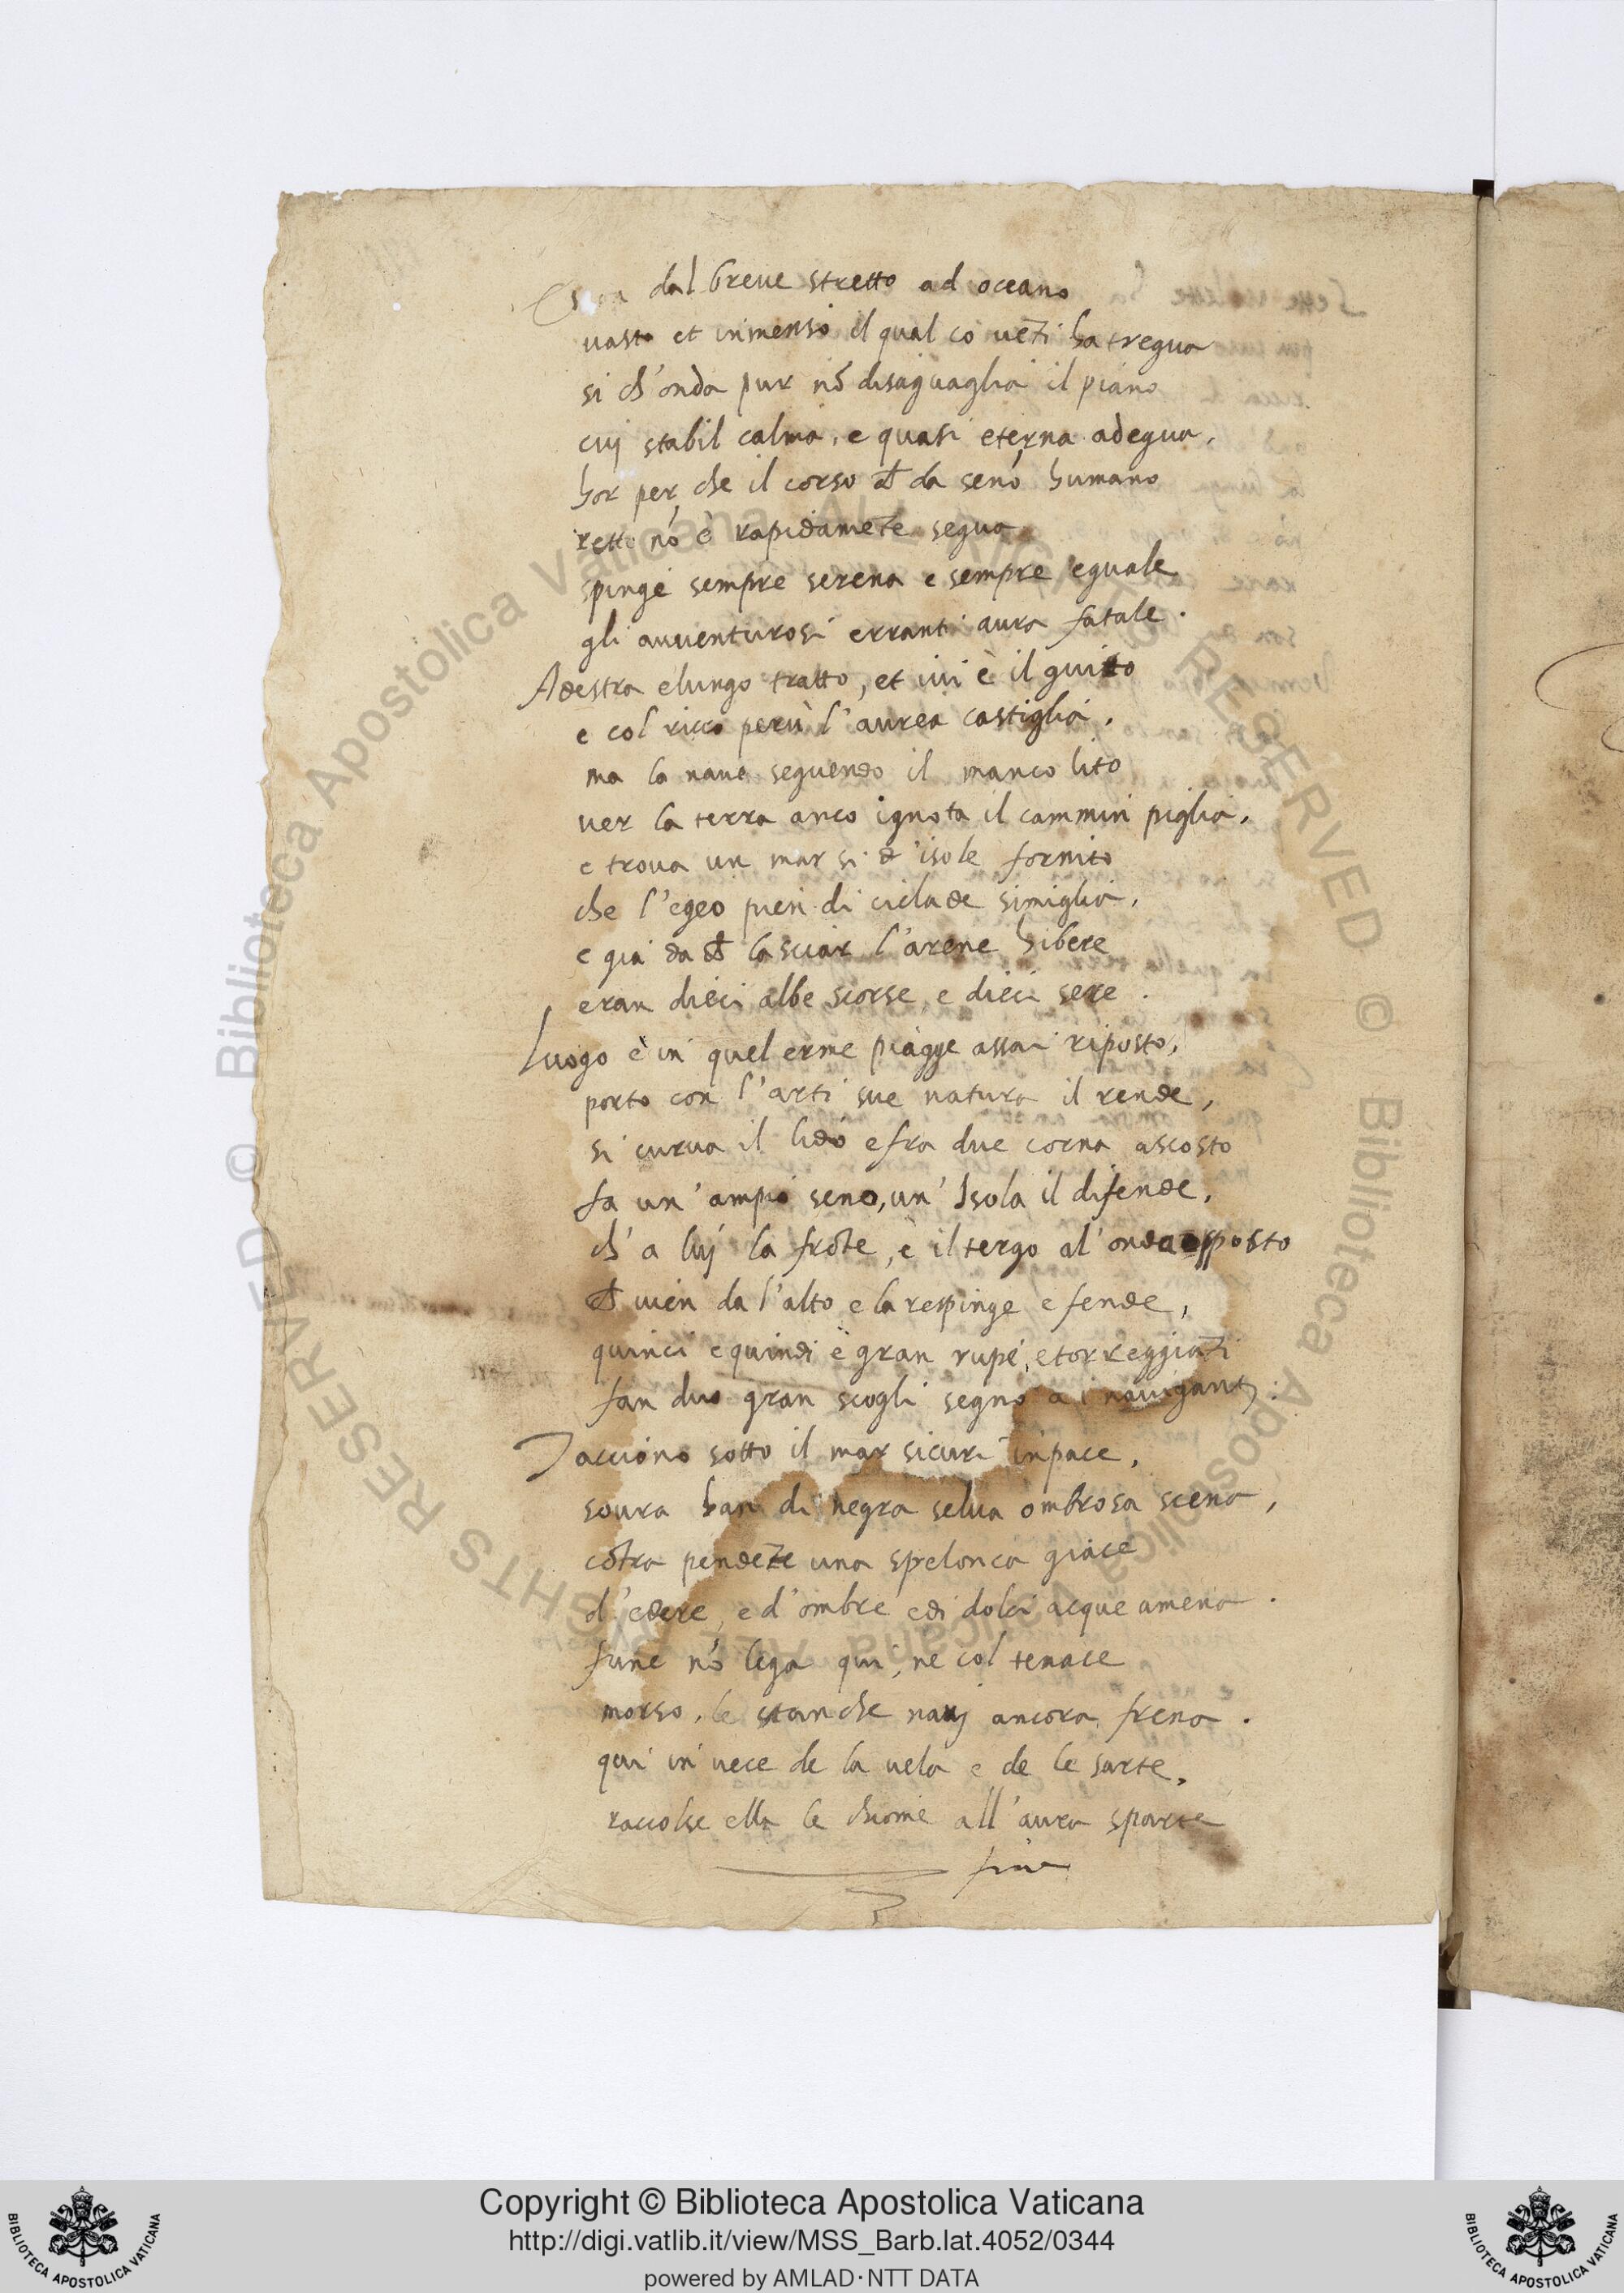 dal breue stretto ad oceano
uasto et inmenso il qual cō uēti ha tregua
si ch'onda pur nō disaguaglia il piano
cuj stabil calma, e quasi eterna adegua,
hor per che il corso ch̄ da senō humano
retto nō è rapidamēte segua
spinge sempre serena e sempre eguale
gli auuenturosi erranti aura fatale.
Adestra elungo tratto, et iui è il guitto
e col ricco perù l'aurea castiglia,
ma la naue seguendo il manco lito
uer la terra anco ignota il cammin piglia,
e troua un mar si d'isole fornito
che l'egeo pien di ciclade simiglia,
e gia da ch̄ lasciar l'arene hibere
eran dieci albe scorse e dieci sere.
Luogo è in quel erme piagge assai riposto,
porto con l'arti sue natura il rende,
si curua il lido e fra due corna ascosto
fa un'ampio seno, un'Isola il difende,
ch'a luj la frōte, e il tergo al'onda opposto
ch̄ uien da l'alto e la respinge e fende,
quinci e quindi è gran rupe, e torreggiāti
fan duo gran scogli segno a i nauiganti:
Tacciono sotto il mar sicuri in pace,
soura han di negra selua ombrosa scena,
cōtra pendēte una spelonca giace
d'edere, e d'ombre e di dolci acque amena.
fune nō lega qui, ne col tenace
morso, le stanche nauj ancora frena.
qui in uece de la uela e de le sarte,
raccolse ella le chiome all'aura sparte
fine
Copyright © Biblioteca Apostolica Vaticana
http://digi.vatlib.it/view/MSS_Barb.lat.4052/0344
powered by AMLAD·NTT DATA
BIBLIOTECA APOSTOLICA VATICANA
BIBLIOTECA APOSTOLICA VATICANA
© Biblioteca Apostolica Vaticana ALL RIGHTS RESERVED
© Biblioteca Apostolica Vaticana ALL RIGHTS RESERVED